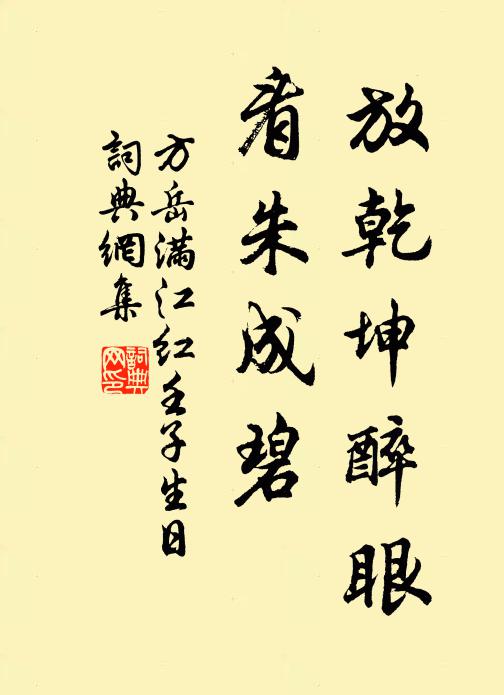 放乾坤醉眼
看朱成碧
方岳滿江紅壬子生日
詞典網集
詞典網印